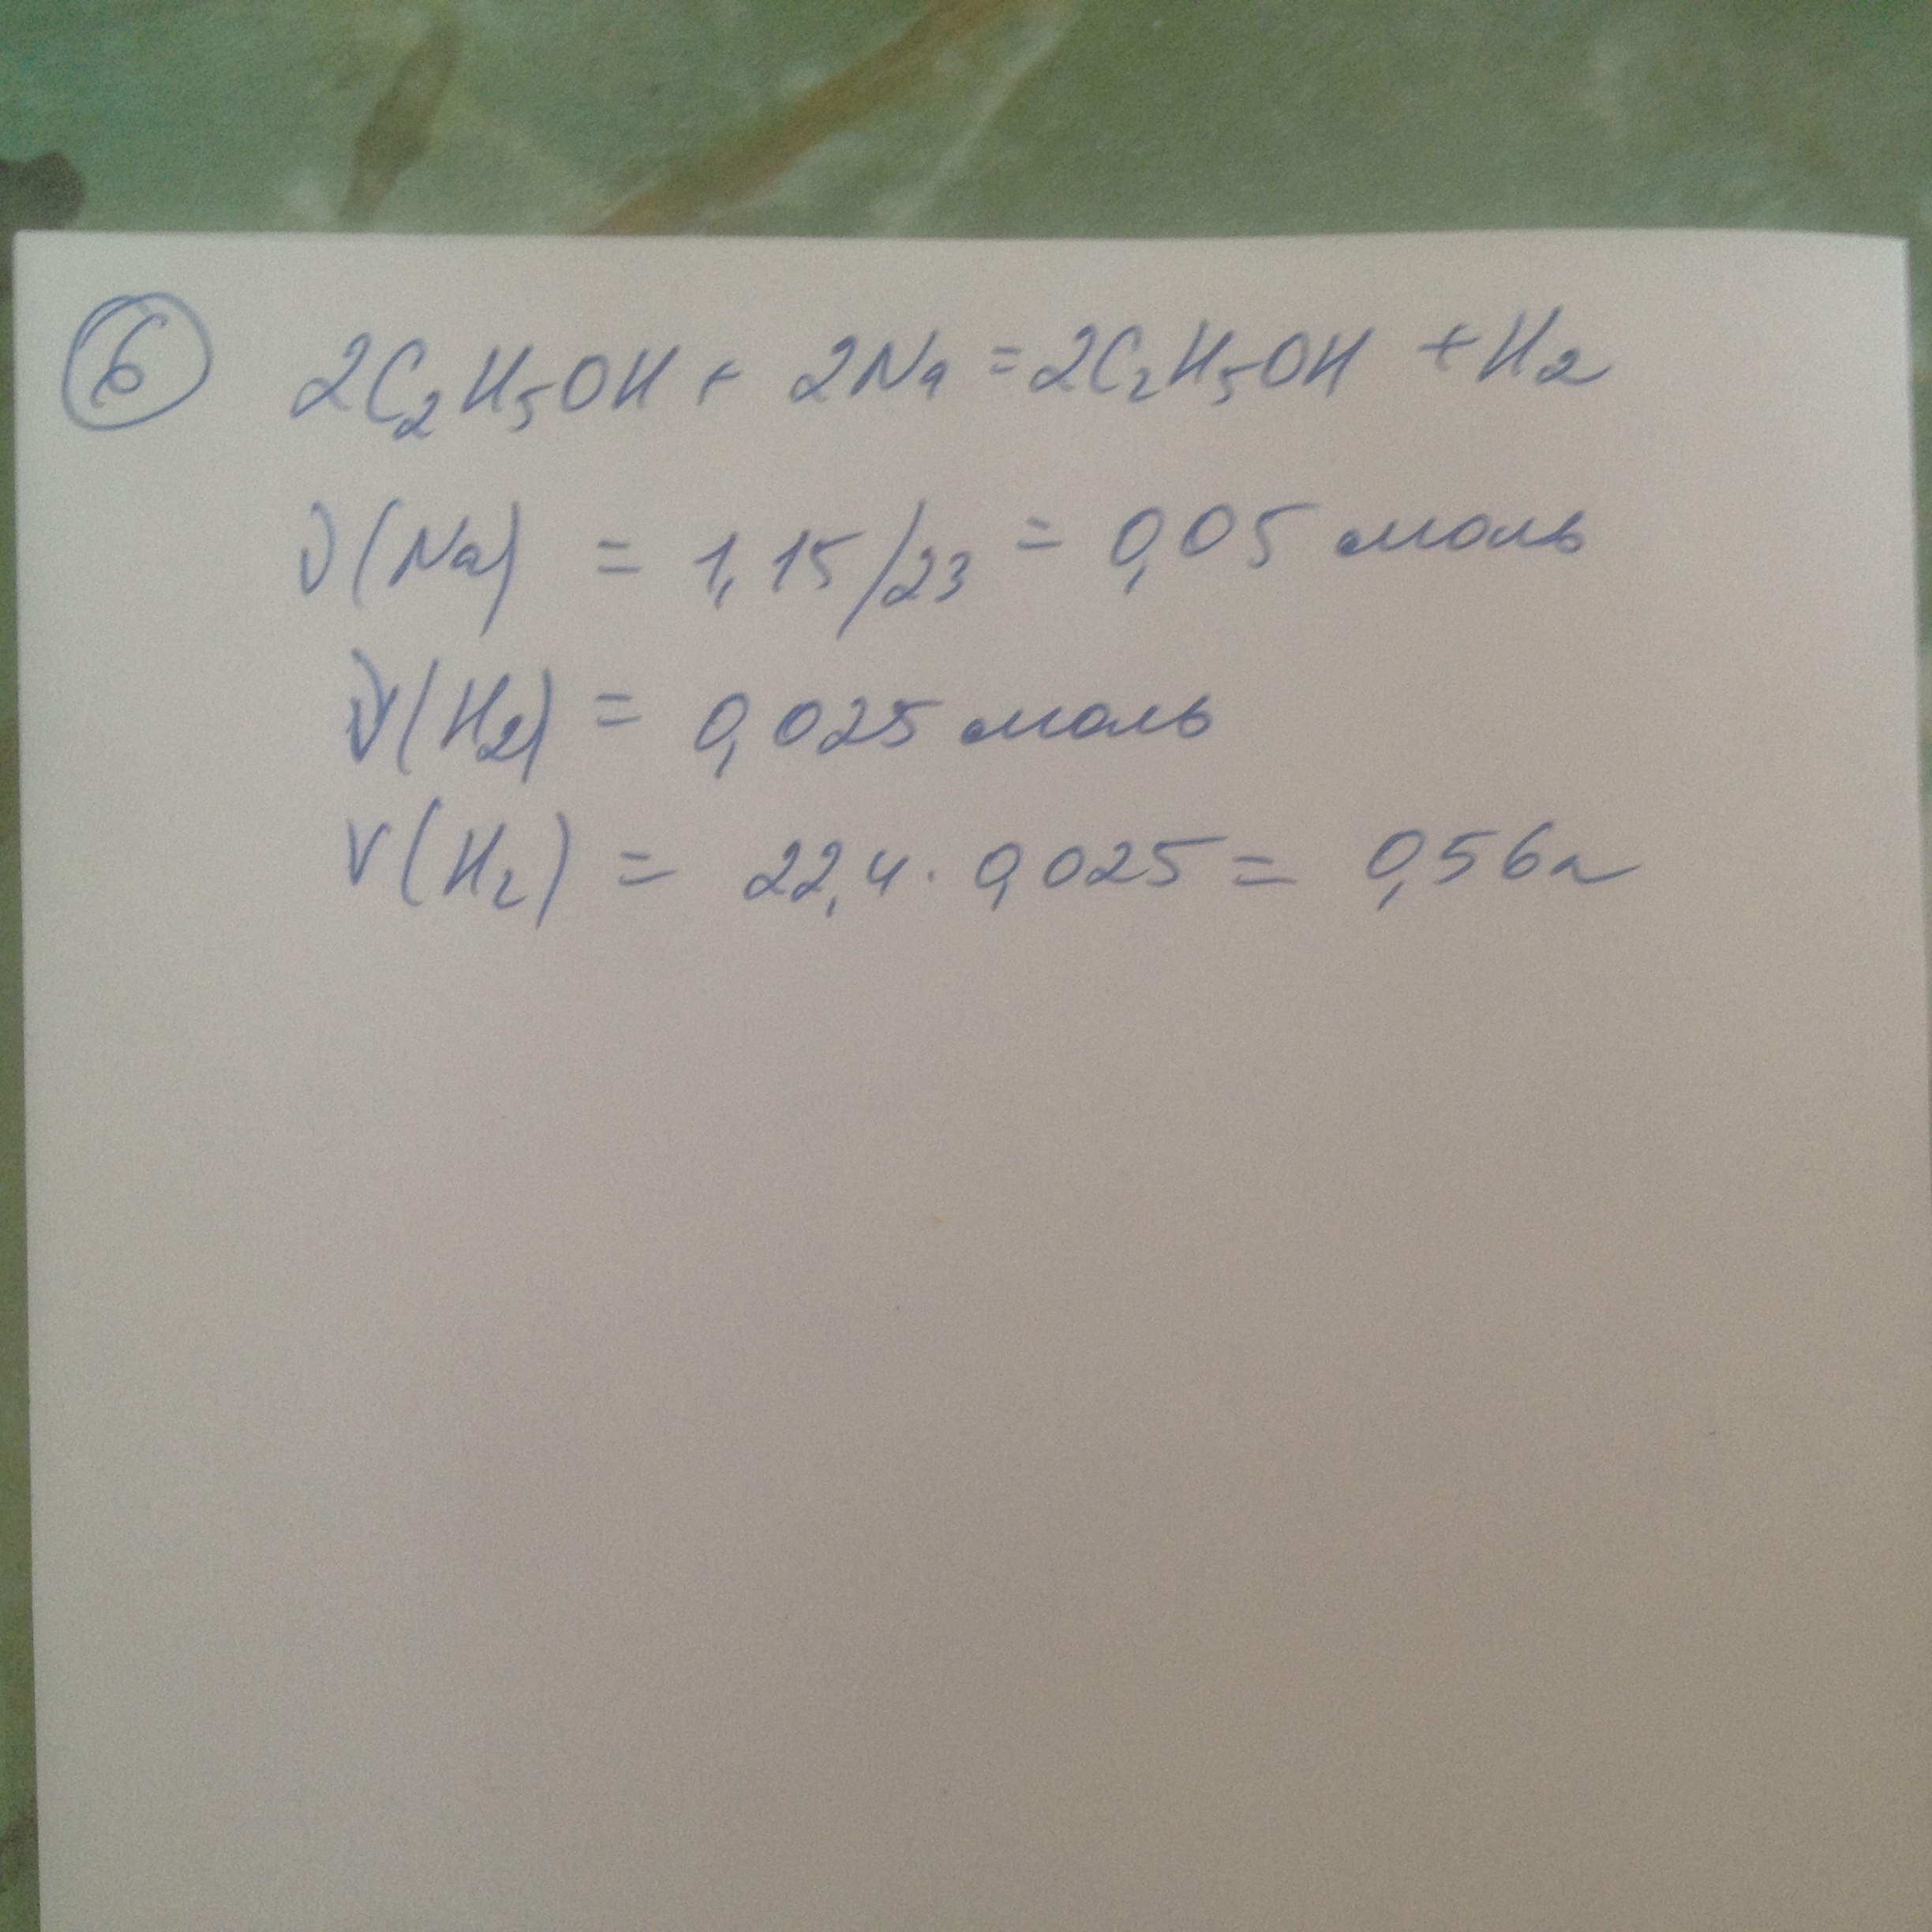 6 2C₂H₅OH + 2Na = 2C₂H₅OH + H₂
ν(Na) = 1,15/23 = 0,05 моль
ν(H₂) = 0,025 моль
V(H₂) = 22,4 · 0,025 = 0,56 л